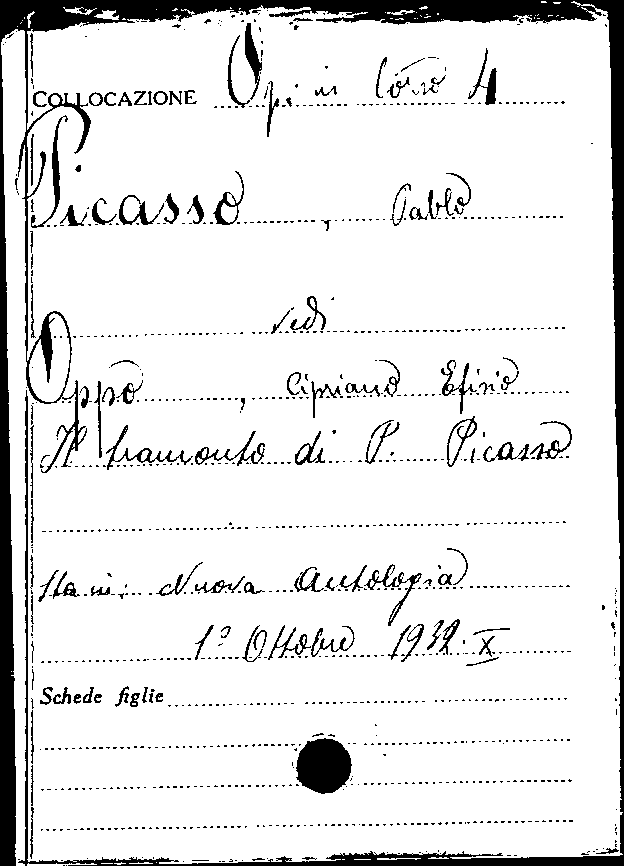 COLLOCAZIONE Op. in Corso 4
Picasso, Pablo
vedi
Oppo, Cipriano Efisio
Il tramonto di P. Picasso
Sta in: Nuova Antologia
1° Ottobre 1932. X
Schede figlie